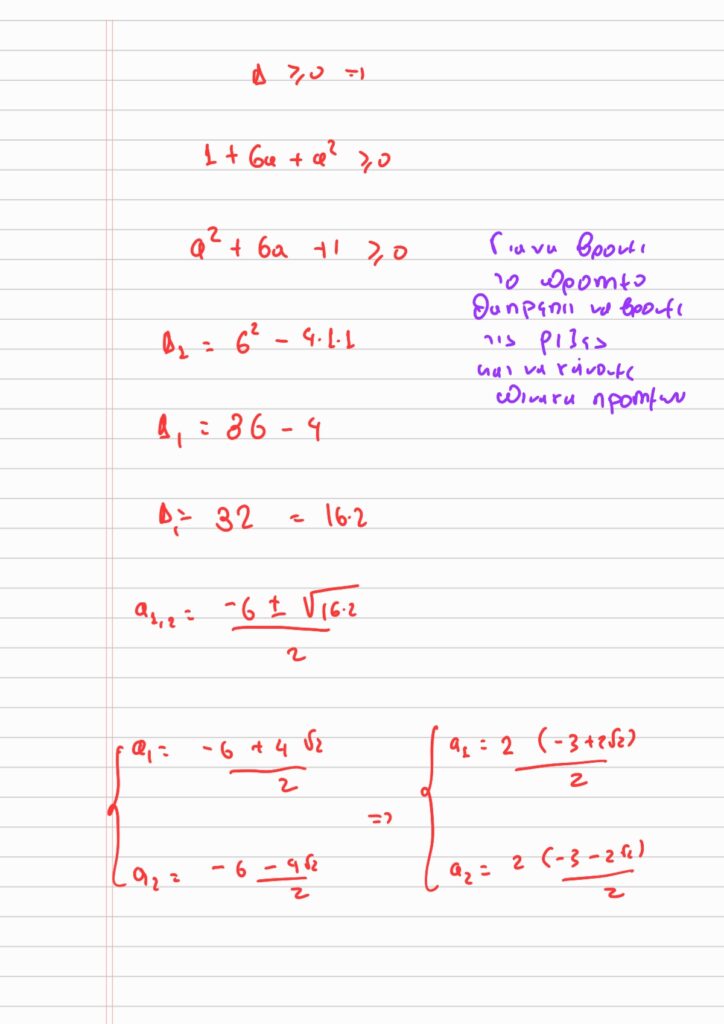 Δ ⩾ 0 ⇒
1 + 6α + α² ⩾ 0
α² + 6α + 1 ⩾ 0
Δ₂ = 6² - 4·1·1
Δ₁ = 36 - 4
Δ₁ = 32 = 16·2
α₁,₂ = (-6 ± √16·2) / 2
α₁ = (-6 + 4√2) / 2 ⇒ α₁ = 2 (-3 + 2√2) / 2
α₂ = (-6 - 4√2) / 2 α₂ = 2 (-3 - 2√2) / 2
Για να βρούτε
το πρόσημο
θα πρέπει να βρούτε
τις ρίζες
και να κάνουτε
πίνακα προσήμων